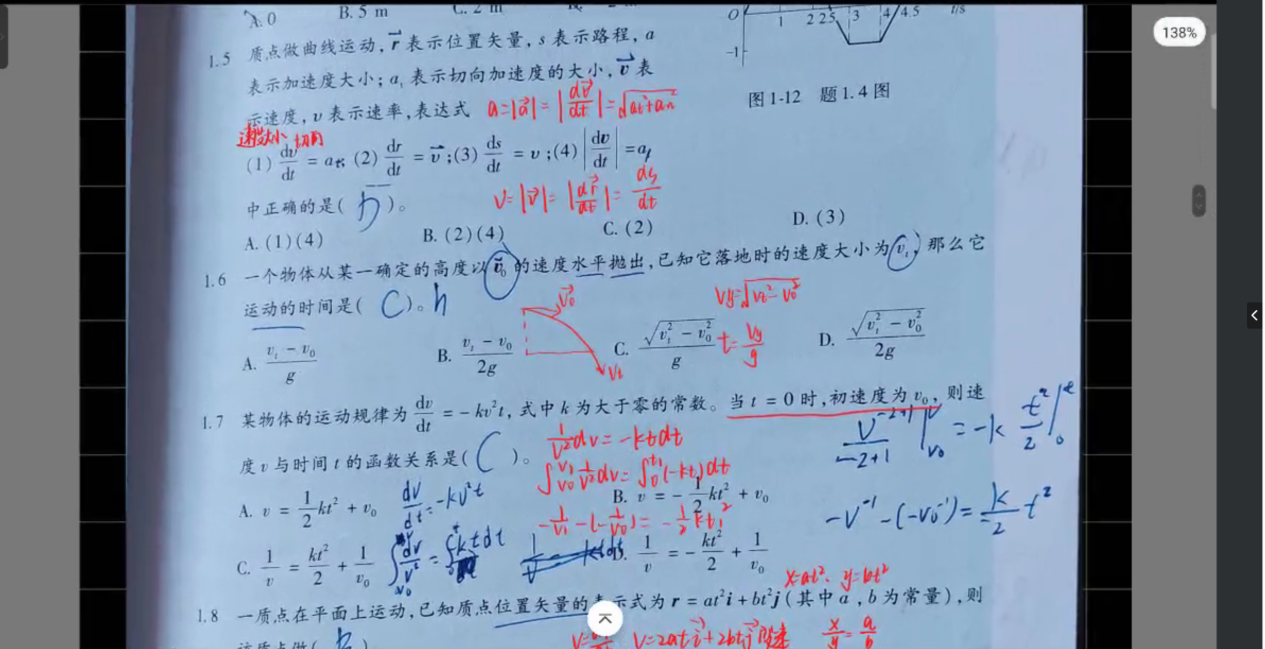 A. 0 B. 5 m C. 2 m
O 1 2 2.5 3 4 4.5 t/s
-1
138%
1.5 质点做曲线运动, r 表示位置矢量, s 表示路程, a
表示加速度大小; a 表示切向加速度的大小, v 表
示速度, v 表示速率, 表达式 a=|a|=|dv/dt|=√(at²+an²)
图 1-12 题 1.4 图
切向
(1) dv/dt = at; (2) dr/dt = v; (3) ds/dt = v; (4) |dv/dt| = at
v=|v|=|dr/dt|=ds/dt
中正确的是( D )。
A. (1)(4) B. (2)(4) C. (2) D. (3)
1.6 一个物体从某一确定的高度以 v₀ 的速度水平抛出, 已知它落地时的速度大小为 vt, 那么它
运动的时间是( C )。 h
v₀ vy=√(vt²-v₀²)
A. (vt - v₀)/g B. (vt - v₀)/2g C. √(vt² - v₀²)/g t=vy/g D. √(vt² - v₀²)/2g
vt
1.7 某物体的运动规律为 dv/dt = -kv²t, 式中 k 为大于零的常数。当 t = 0 时, 初速度为 v₀, 则速
1/v² dv = -kt dt
v⁻²⁺¹/-2+1 |v v₀ = -k t²/2 |t 0
度 v 与时间 t 的函数关系是( C )。
∫v₀ v₁ 1/v² dv = ∫0 t₁ (-kt)dt
A. v = 1/2 kt² + v₀ dv/dt = -kv²t B. v = -1/2 kt² + v₀
-1/v₁ - (-1/v₀) = -1/2 kt₁²
-v⁻¹ - (-v₀⁻¹) = -k/2 t²
C. 1/v = kt²/2 + 1/v₀ D. 1/v = -kt²/2 + 1/v₀
x=at². y=bt²
1.8 一质点在平面上运动, 已知质点位置矢量的表示式为 r = at²i + bt²j (其中 a, b 为常量), 则
v=2ati+2btj x/y=a/b